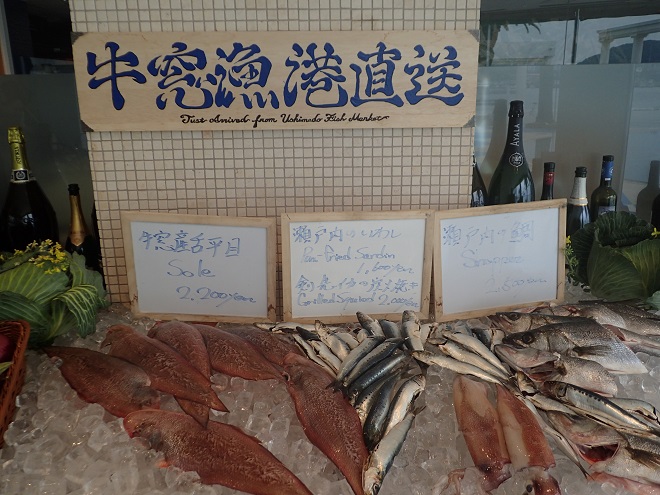 牛窓漁港直送
Just Arrived from Ushimado Fish Market
牛窓産舌平目
Sole
2,200yen
瀬戸内のいわし
Pan-Fried Sardin
1,600yen
Grilled Squid
2,000yen
瀬戸内の鯛
AYALA